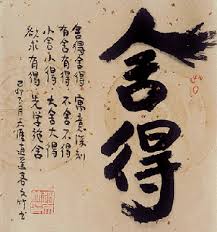 舍得
舍得舍得 寓意深刻
有舍有得 不舍不得
小舍小得 大舍大得
欲求有得 先学施舍